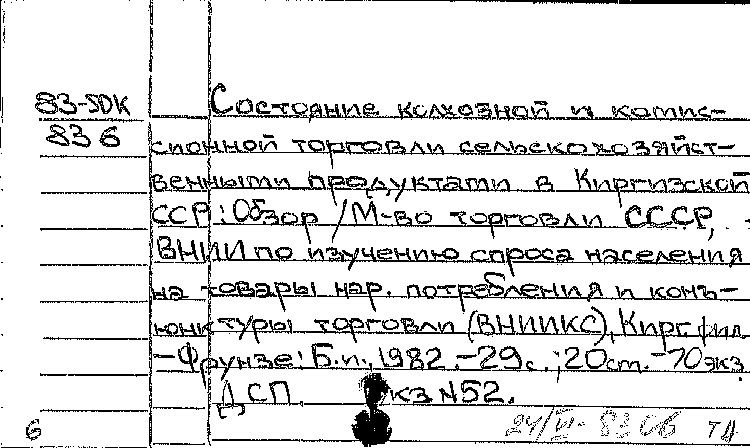 83-5ДК
836
Состояние колхозной и комис-
сионной торговли сельскохозяйст-
венными продуктами в Киргизской
ССР: Обзор / М-во торговли СССР,
ВНИИ по изучению спроса населения
на товары нар. потребления и конъ-
юнктуры торговли (ВНИИКС), Кирг. фил.
- Фрунзе: Б.и., 1982. - 29с.; 20см. - 70экз.
ДСП. кз N52.
6
24/VI - 83